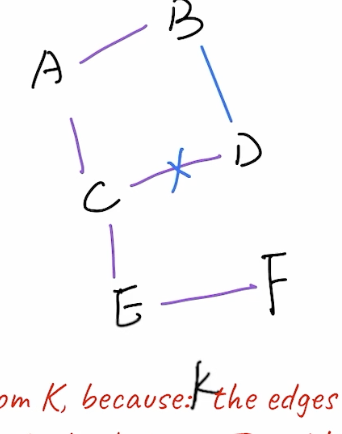 B
A
D
C
E
F
K
om K, because: the edges